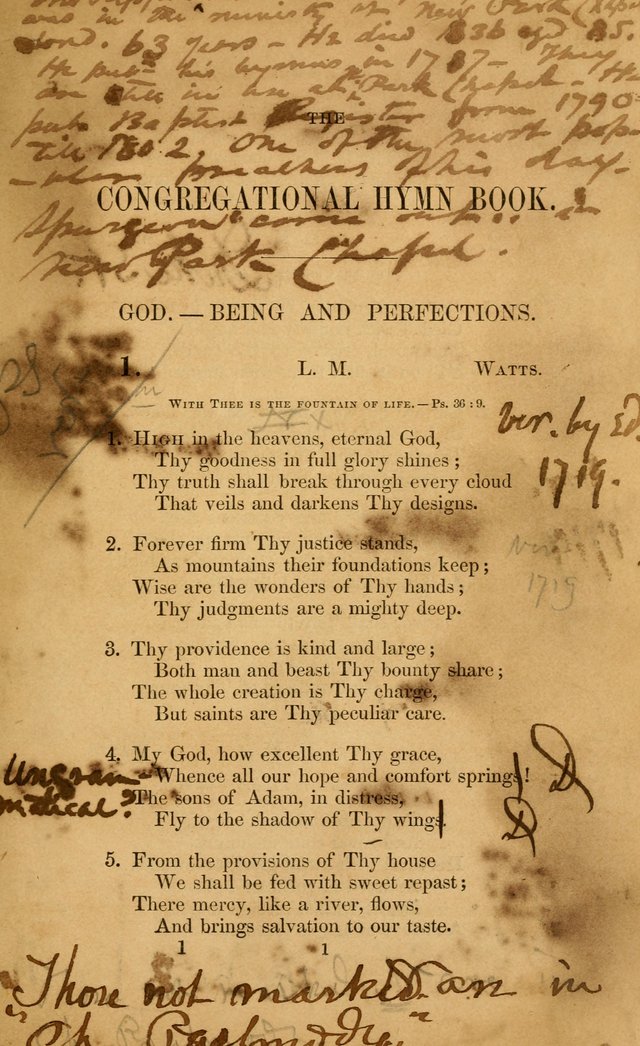 was in the ministry at New Park Chapel
63 years - He died 1836 aged 85.
He put his hymns in 1787 - They
are still in use at Park Chapel - He
Baptist Minister from 1790
THE
till 1802. One of the most popu
-lar preachers of his day -
CONGREGATIONAL HYMN BOOK.
Spurgeon came out in
New Park Chapel.
GOD. — BEING AND PERFECTIONS.
1. L. M. WATTS.
WITH THEE IS THE FOUNTAIN OF LIFE. — Ps. 36 : 9.
ver. by Ed.
1719.
1. HIGH in the heavens, eternal God,
Thy goodness in full glory shines ;
Thy truth shall break through every cloud
That veils and darkens Thy designs.
2. Forever firm Thy justice stands,
As mountains their foundations keep ;
Wise are the wonders of Thy hands ;
Thy judgments are a mighty deep.
1719
3. Thy providence is kind and large ;
Both man and beast Thy bounty share ;
The whole creation is Thy charge,
But saints are Thy peculiar care.
4. My God, how excellent Thy grace,
Whence all our hope and comfort springs !
The sons of Adam, in distress,
Fly to the shadow of Thy wings.
Ungram-
matical?
5. From the provisions of Thy house
We shall be fed with sweet repast ;
There mercy, like a river, flows,
And brings salvation to our taste.
1 1
Those not marked are in
"Ch. Psalmodia"